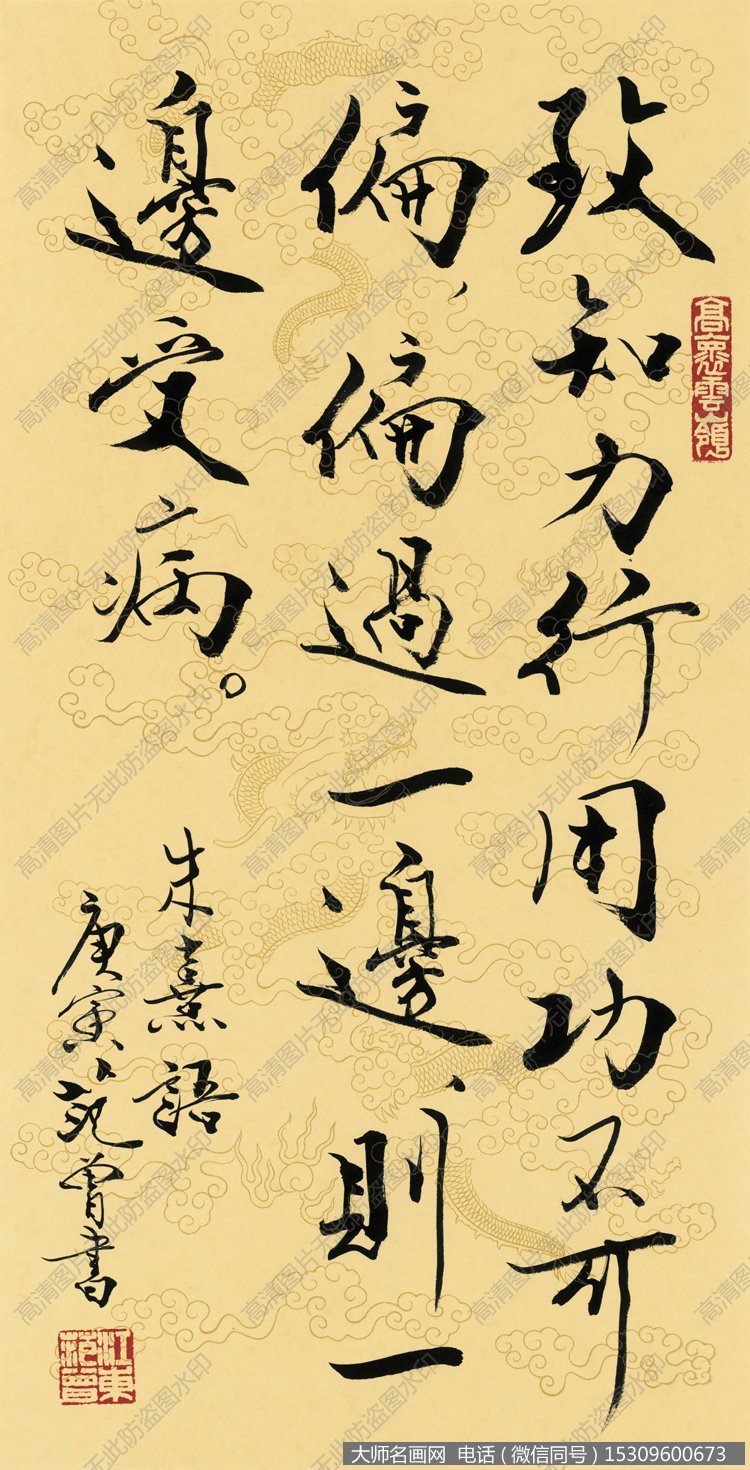 致知力行用功不可
偏、偏過一邊、則一
邊受病。
朱熹語
庚寅范曾書
江東范曾
高清图片无此防盗图水印
大师名画网 电话（微信同号）15309600673